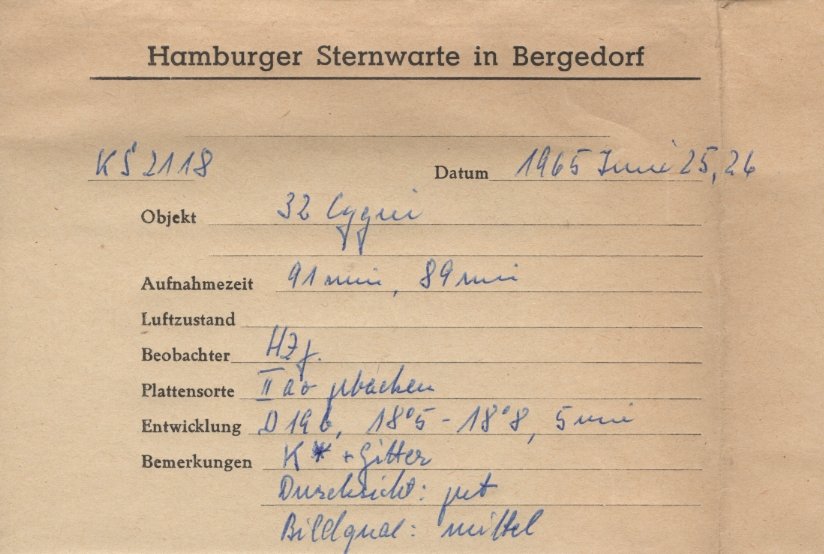 Hamburger Sternwarte in Bergedorf
KS 2118 Datum 1965 Juni 25, 26
Objekt 32 Cygni
Aufnahmezeit 91 min, 89 min
Luftzustand
Beobachter
Plattensorte II a o gebacken
Entwicklung D 19 b, 18°5 - 18°8, 5 min
Bemerkungen K * + Gitter
Durchsicht: gut
Bildqual: mittel